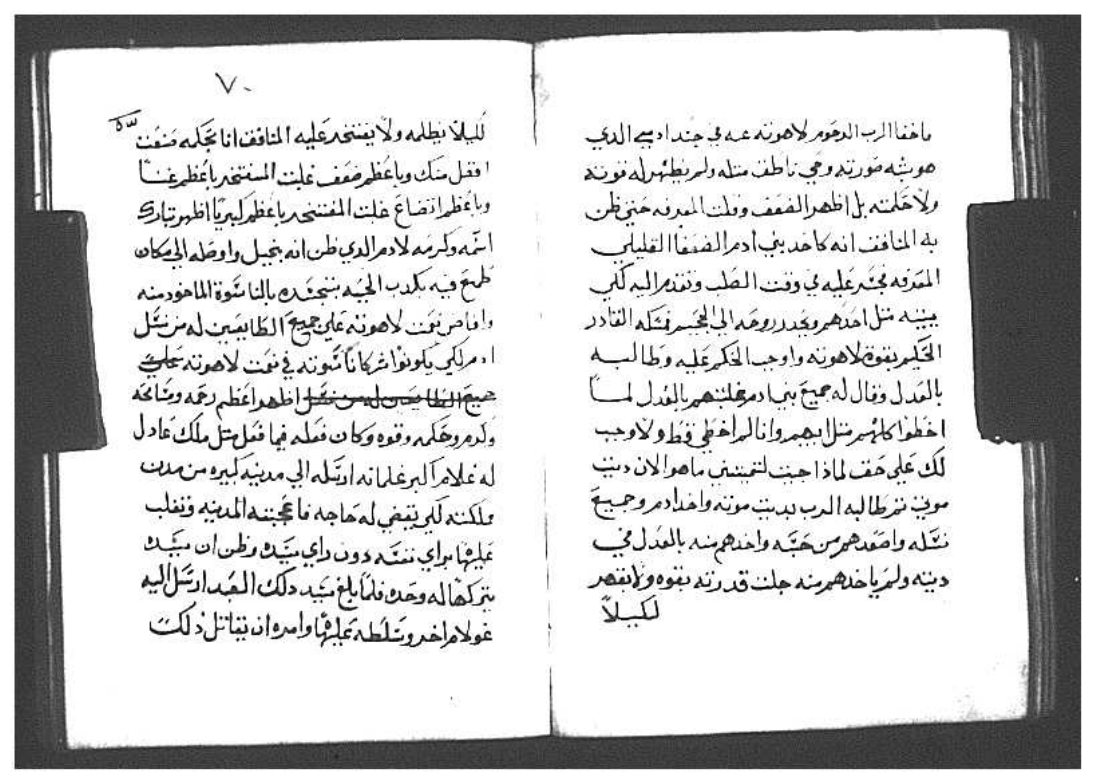 ما خفا الرب الرحوم لاهوته عنه في جسد ادمي الدي
هو شبه صورته وحي ناطق متله ولم يظهر له قوته
ولا حكمته بل اظهر الضعف وقلت المعرفه حتي ظن
به المنافق انه كاحد بني ادم الضعفا القليلي
المعرفه فجسر عليه في وقت الصلب وتقدم اليه لكي
يبيته متل احدهم ويحدر روحه الي الجحيم فمسكه القادر
الحكيم بقوة لاهوته واوجب الحكم عليه وطالبه
بالعدل وقال له جميع بني ادم غلبتهم بالعدل لما
اخطوا كلهم متل ابيهم وانا لم اخطي قط ولا وجب
لك علي حق لماذا جيت لتميتني ما هو الان ديت
موتي تم طالبه الرب بديت موته واخد ادم وجميع
نسله واصعدهم من حبسه واخدهم منه بالعدل في
ديته ولم ياخدهم منه جلت قدرته بقوه ولا بقهر
لكيلا
٧٠
لكيلا يظلمه ولا يفتخر عليه المنافق انا بحكمه صنعت
افضل منك وباعظم ضعف غلبت المفتخر باعظم غنا
وباعظم اتضاع غلبت المفتخر باعظم كبريا اظهر تبارك
اسمه وكرمه لادم الدي ظن انه بخيل واوصله الي مكان
طمع فيه بكدب الحيه بتجسده بالناسوة الماخود منه
وافاض نعمت لاهوته علي جميع الطايعين له من نسل
ادم لكي يكونوا شركا ناسوته في نعمت لاهوته علي
جميع الطايعين له من نسل اظهر اعظم رحمه ومسامحه
وكرم وحكمه وقوه وكان فعله فيما فعل متل ملك عادل
له غلام اكبر غلمانه ارسله الي مدينه كبيره من مدن
مملكته لكي يقضي له حاجه فاعجبته المدينه وتغلب
عليها براي نفسه دون راي سيده وظن ان سيده
يتركها له وحده فلما بلغ سيد دلك العبد ارسل اليه
غولام اخر وسلطه عليها وامره ان يقاتل دلك